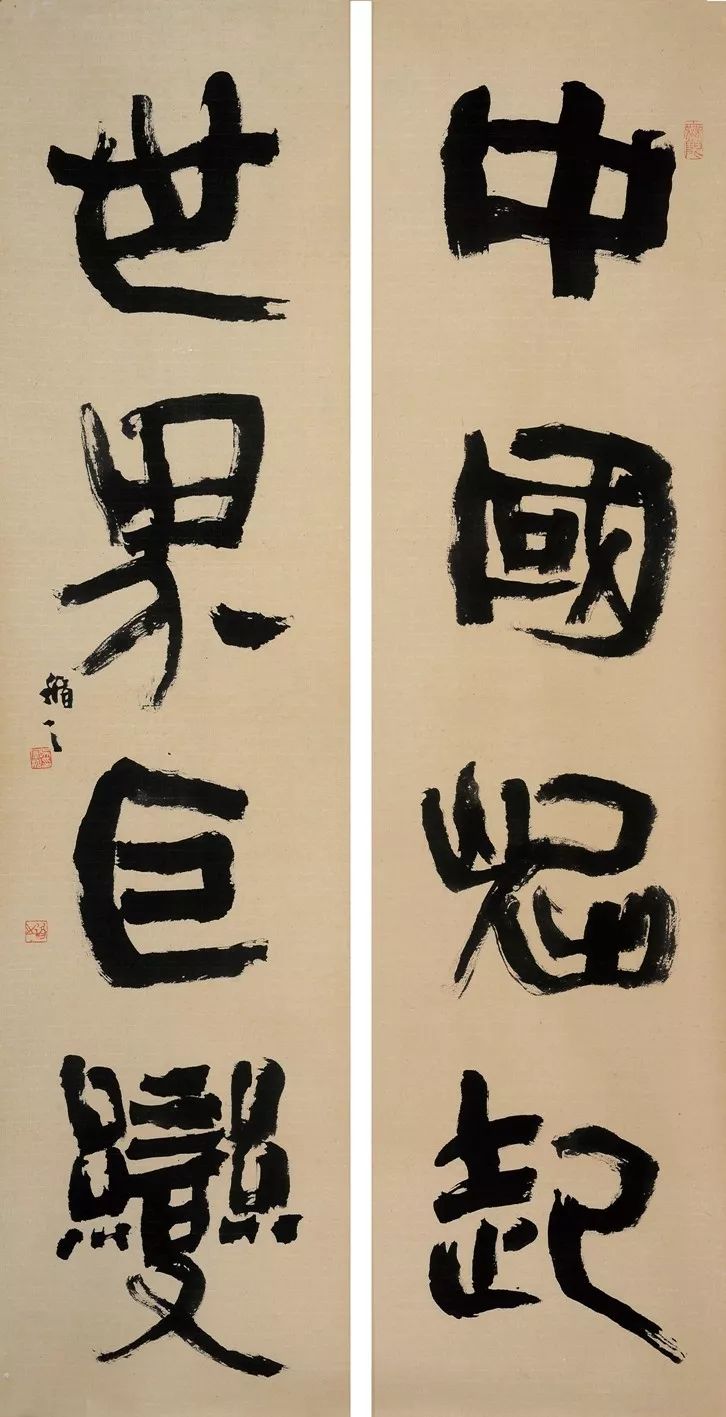 中國崛起
世界巨變